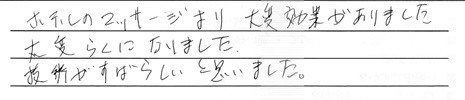 ホテルのマッサージより 大変効果がありました
大変らくになりました.
技術がすばらしいと思いました。